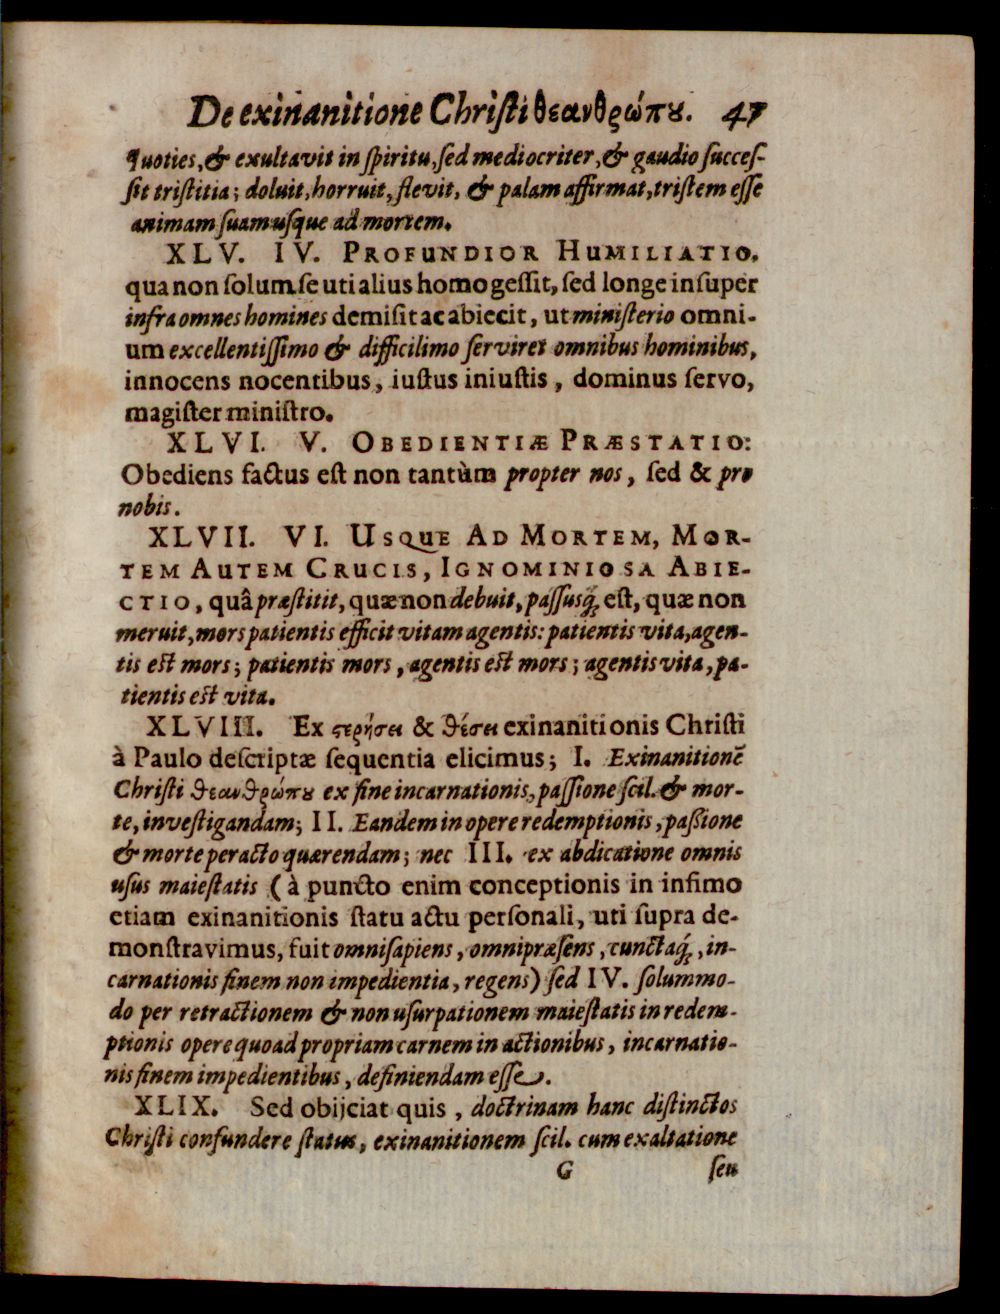 De exinanitione Christi θεανθρώπȣ. 47
quoties, & exultavit in spiritu, sed mediocriter, & gaudio succes-
sit tristitia; doluit, horruit, flevit, & palam affirmat, tristem esse
animam suam usque ad mortem.
XLV. IV. PROFUNDIOR HUMILIATIO,
qua non solum se uti alius homo gessit, sed longe insuper
infra omnes homines demisit ac abiecit, ut ministerio omni-
um excellentissimo & difficilimo serviret omnibus hominibus,
innocens nocentibus, iustus iniustis, dominus servo,
magister ministro.
XLVI. V. OBEDIENTIÆ PRÆSTATIO:
Obediens factus est non tantùm propter nos, sed & pro
nobis.
XLVII. VI. USQUE AD MORTEM, MOR-
TEM AUTEM CRUCIS, IGNOMINIOSA ABIE-
CTIO, quâ præstitit, quæ non debuit, passusq́; est, quæ non
meruit, mors patientis efficit vitam agentis: patientis vita, agen-
tis est mors; patientis mors, agentis est mors; agentis vita, pa-
tientis est vita.
XLVIII. Ex ϛερήσει & θέσει exinanitionis Christi
à Paulo descriptæ sequentia elicimus; I. Exinanitionē
Christi θεανθρώπȣ ex fine incarnationis, passione scil. & mor-
te, investigandam; II. Eandem in opere redemptionis, passione
& morte peracto quærendam; nec III. ex abdicatione omnis
usus maiestatis (à puncto enim conceptionis in infimo
etiam exinanitionis statu actu personali, uti supra de-
monstravimus, fuit omnisapiens, omnipræsens, cunctaq́;, in-
carnationis finem non impedientia, regens) sed IV. solummo-
do per retractionem & non usurpationem maiestatis in redem-
ptionis opere quoad propriam carnem in actionibus, incarnatio-
nis finem impedientibus, definiendam esse.
XLIX. Sed obijciat quis, doctrinam hanc distinctos
Christi confundere status, exinanitionem scil. cum exaltatione
G seu